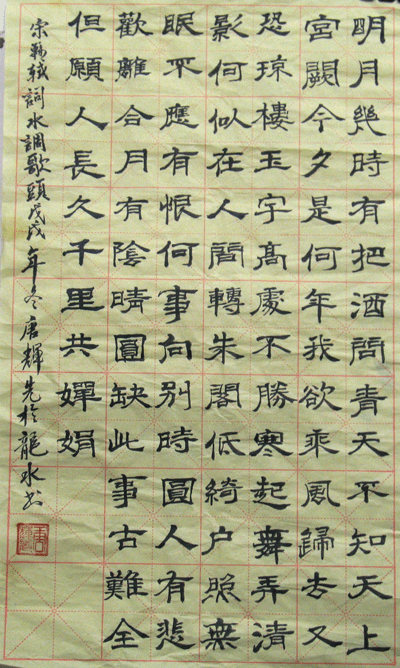 明月幾時有把酒問青天不知天上
宮闕今夕是何年我欲乘風歸去又
恐琼樓玉宇高處不勝寒起舞弄清
影何似在人間轉朱閣低綺户照無
眠不應有恨何事向別時圓人有悲
歡離合月有陰晴圓缺此事古難全
但願人長久千里共嬋娟
宋蘇軾詞水調歌頭戊戌年冬唐輝先於龍水书